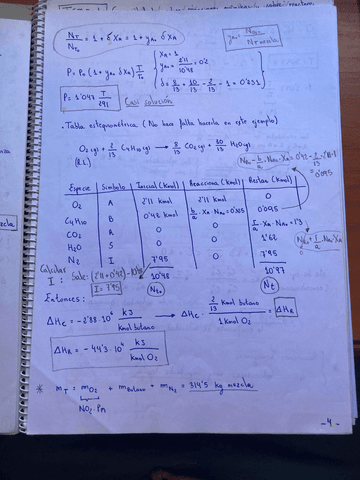 N_T/N_T0 = 1 + ξ X_A = 1 + y_A0 δ X_A
y_A0 = N_A0/N totales
P = P_0 (1 + y_A0 δ X_A) T/T_0
X_A = 1
y_A0 = 2'11/10'48 = 0'2
δ = 8/13 + 10/13 - 2/13 - 1 = 0'231
P = 1'047 T/291
Casi solución
• Tabla estequiométrica (No hace falta hacerla en este ejemplo)
O2(g) + 2/13 C4H10(g) → 8/13 CO2(g) + 10/13 H2O(g)
(R.L.)
Especie Símbolo Inicial (Kmol) Reacciona (Kmol) Restan (Kmol)
O2 A 2'11 kmol 2'11 kmol 0
C4H10 B 0'42 kmol b/a · X_A · N_A0 = 0'325 0'095
CO2 R 0 0 r/a · X_A · N_A0 = 1'3
H2O S 0 0 1'62
N2 I 7'95 0 7'95
10'48 10'97
N_T0 N_T
Calcular
I: Sale: (2'11 + 0'42) - 10'48
I = 7'95
Entonces:
ΔH_C = -2'88 · 10^6 kJ/kmol butano → ΔH_C · (2/13 kmol butano)/(1 kmol O2) = ΔH_R
ΔH_R = -443 · 10^6 kJ/kmol O2
* m_T = m_O2 + m_Butano + m_N2 = 314'5 kg mezcla
N_O2 · Pm
-4-